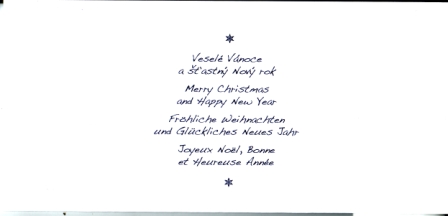 Veselé Vánoce
a šťastný Nový rok
Merry Christmas
and Happy New Year
Fröhliche Weihnachten
und Glückliches Neues Jahr
Joyeux Noël, Bonne
et Heureuse Année